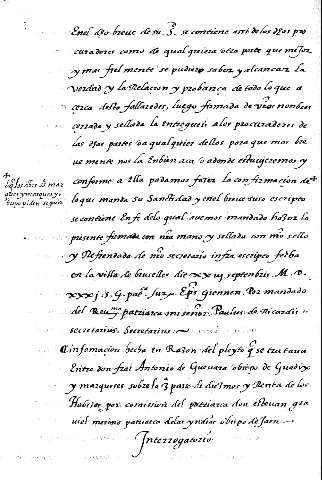 En el dho breve de su S. se contiene assi de los dhos pro
curadores como de qualquiera otra parte que mejor
y mas fiel mente se pudiere saber y alcançar la
verdad y la Relacion y probança de todo lo que a
cerca desto fallaredes, luego firmada de vro nonbre
cerrada y sellada la entregueis a los procuradores de
las dhas partes o a qualquier dellos para que mas bre
ue mente nos la Enbien aca o adonde estuuieremos y
conforme a Ella podamos fazer la confirmacion de
lo que manda su Santidad y en el breve suso escripto
se contiene En fe de lo qual auemos mandado hazer la
presente firmada con nra mano y sellada con nro sello
y Refrendado de nro secretario infra escripto fecha
en la villa de bruselles die xxiij septembris M. D.
xxxj. S. G. Giennen. Por mandado
del patriarca mi señor. Paulus de Ricardis
secretarius. Secretarius.
infomacion hecha en Razon del pleyto q se trataua
Entre don frai Antonio de Gueuara obispo de Guadix
y marqueses sobre la parte de diezmos y Renta de los
Habizes por comission del patriarca don esteuan ga
uiel merino patriarca de las yndias obispo de Jaen
Interrogatorio